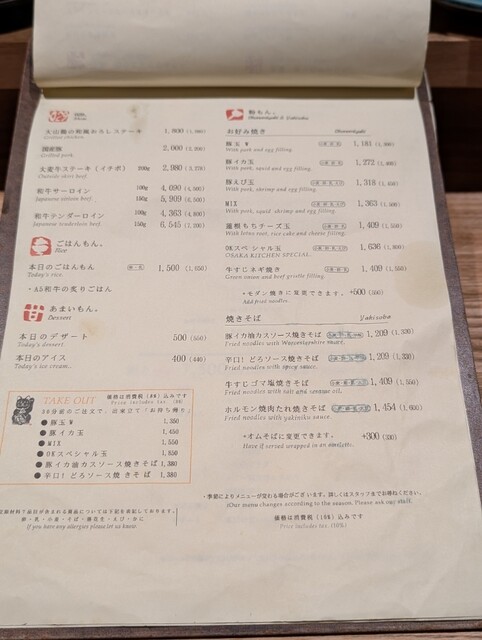 大山鶏の和風おろしステーキ 1,800
Grilled chicken
国産豚 2,000 (2,200)
Grilled pork
大麦牛ステーキ(イチボ) 200g 2,980
Outside skirt beef
和牛サーロイン 100g 4,090
Japanese sirloin beef 150g 5,909
和牛テンダーロイン 100g 4,363 (4,800)
Japanese tenderloin beef 150g 6,545 (7,200)
ごはんもん。
Rice
本日のごはんもん 1,500
Today's rice
・A5和牛の炙りごはん
あまいもん。
Dessert
本日のデザート 500 (550)
Today's dessert
本日のアイス 400 (440)
Today's ice cream
TAKE OUT 価格は消費税(8%)込みです
Prices includes tax (8%)
●豚玉W 1,350
●豚イカ玉 1,450
●MIX 1,550
●OKスペシャル玉 1,850
●豚イカ油カスソース焼きそば 1,380
●辛口!どろソース焼きそば 1,380
卵・乳・小麦・そば・落花生・えび・かに
If you have any allergies please let us know.
粉もん。
Okonomiyaki & Yakisoba
お好み焼き Okonomiyaki
豚玉W 1,181
With pork and egg filling.
豚イカ玉 1,272
With pork, squid and egg filling.
豚えび玉 1,318
With pork, shrimp and egg filling.
MIX 1,363
With pork, squid, shrimp and egg filling.
蓮根もちチーズ玉 1,409
With lotus root, rice cake and cheese filling.
OKスペシャル玉 1,636
OSAKA KITCHEN SPECIAL.
牛すじネギ焼き 1,409
Green onion and beef gristle filling.
・モダン焼きに変更できます。 +500
Add fried noodles.
焼きそば Yakisoba
豚イカ油カスソース焼きそば 1,209 (1,330)
Fried noodles with Worcestershire sauce.
辛口!どろソース焼きそば 1,209 (1,330)
Fried noodles with spicy sauce.
牛すじゴマ塩焼きそば 1,409 (1,550)
Fried noodles with salt and sesame oil.
ホルモン焼肉たれ焼きそば 1,454 (1,600)
Fried noodles with yakiniku sauce.
・オムそばに変更できます。 +300 (330)
Have it served wrapped in an omelette.
・季節によりメニューが変わる場合がございます。詳しくはスタッフまでお尋ねください。
(Our menu changes according to the season. Please ask our staff.
価格は消費税(10%)込みです
Price includes tax. (10%)